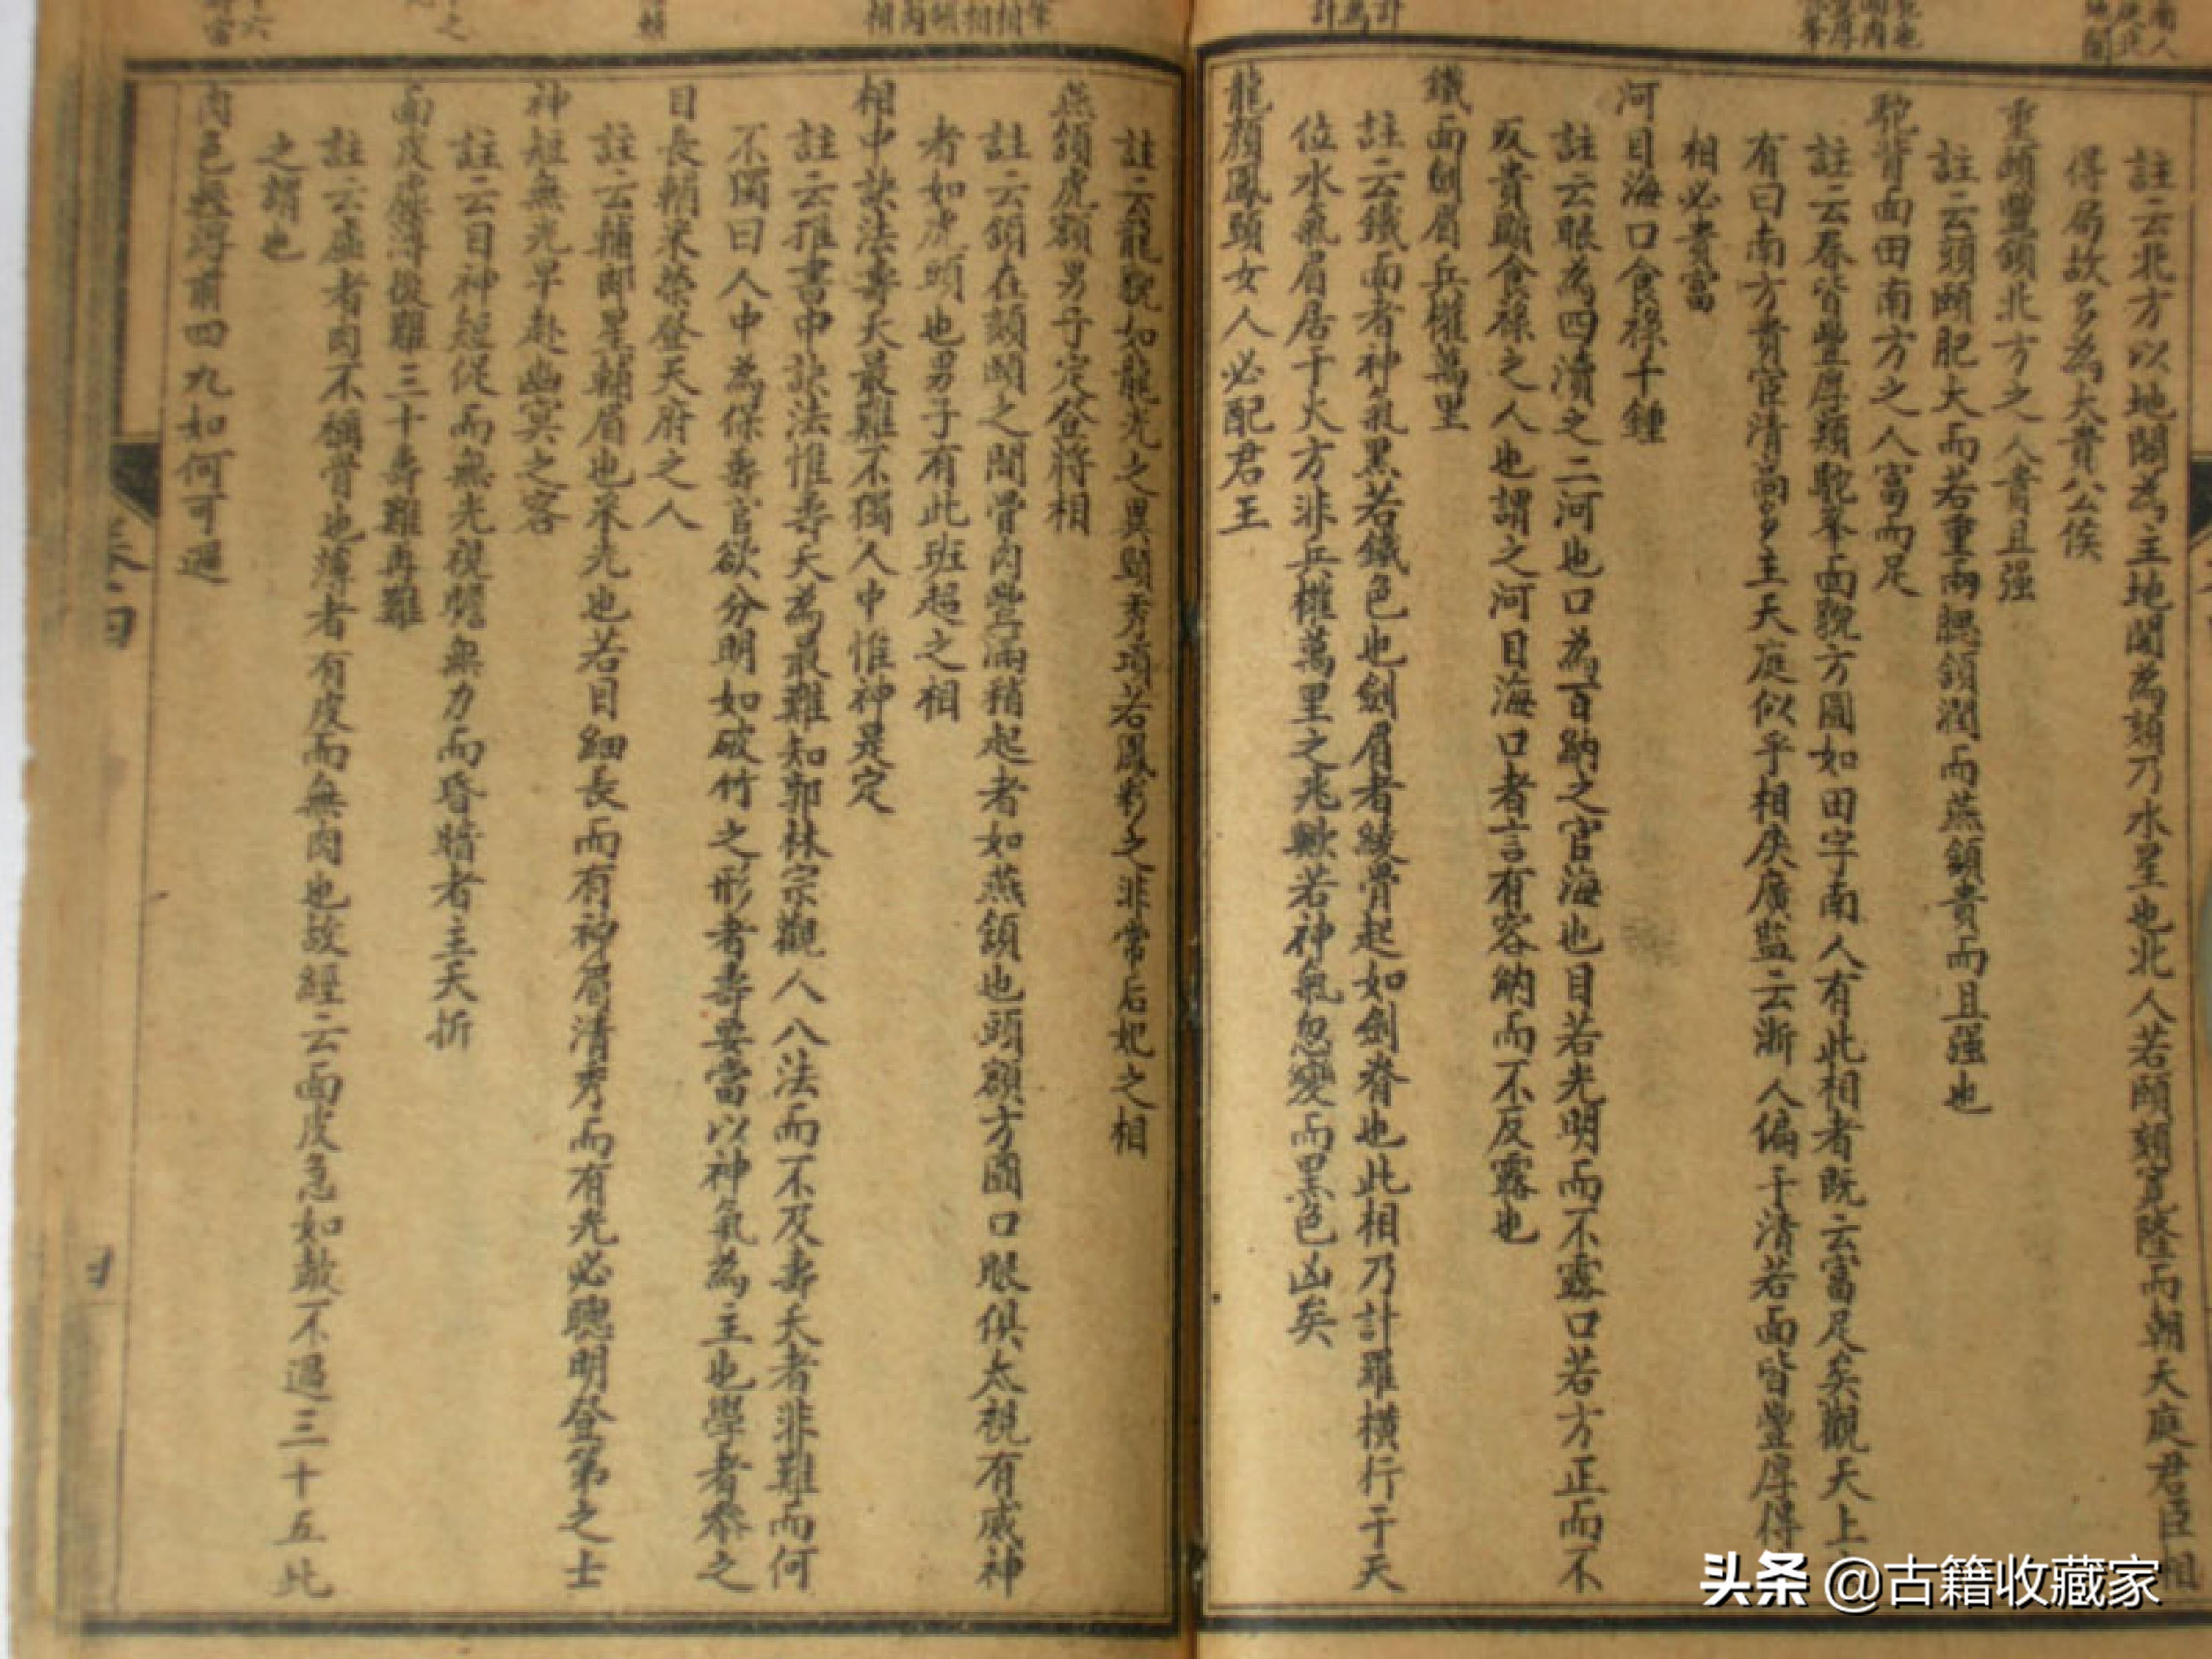 註云北方以地閣為主地閣為頦乃水星也北人若頤頦寬隆而朝天庭君臣相
得局故多為大貴公侯
重頤豐頷北方之人貴且强
註云頭頤肥大而若重兩腮頷濶而燕頷貴而且强也
駝背面田南方之人富而足
註云春背豐厚類駝峯面貌方圓如田字南人有此相者既云富足矣觀天上
有曰南方貴宦清高多主天庭似乎相戾廣監云浙人偏于清若面背豐厚得
相必貴富
河目海口食祿千鍾
註云眼為四瀆之二河也口為百納之官海也目若光明而不露口若方正而不
反貴顯食祿之人也謂之河目海口者言有容納而不反露也
鐵面劍眉兵權萬里
註云鐵面者神氣黑若鐵色也劍眉者稜骨起如劍脊也此相乃計羅橫行于天
位水氣眉居于火方非兵權萬里之兆歟若神氣忽變而黑色凶矣
龍顏鳳頸女人必配君王
註云龍貌如龍光之異頸秀項若鳳彩之非常后妃之相
燕頷虎額男子定登將相
註云頷在頦頤之間骨肉豐滿稍起者如燕頷也頭額方圓口眼俱大視有威神
者如虎頭也男子有此班超之相
相中訣法壽夭最難不獨人中惟神是定
註云推書中訣法惟壽夭為最難知郭林宗觀人八法而不及壽夭者非難而何
不獨曰人中為保壽官欲分明如破竹之形者壽要當以神氣為主也學者參之
目長輔采榮登天府之人
註云輔即星輔眉也采光也若目細長而有神眉清秀而有光必聰明登第之士
神短無光早赴幽冥之客
註云目神短促而無光視瞻無力而昏暗者主夭折
面皮虛薄後難三十壽難再難
註云虛者肉不稱骨也薄者有皮而無肉也故經云面皮急如皷不過三十五此
之謂也
肉色輕浮前四九如何可過
卷四
頭条 @古籍收藏家